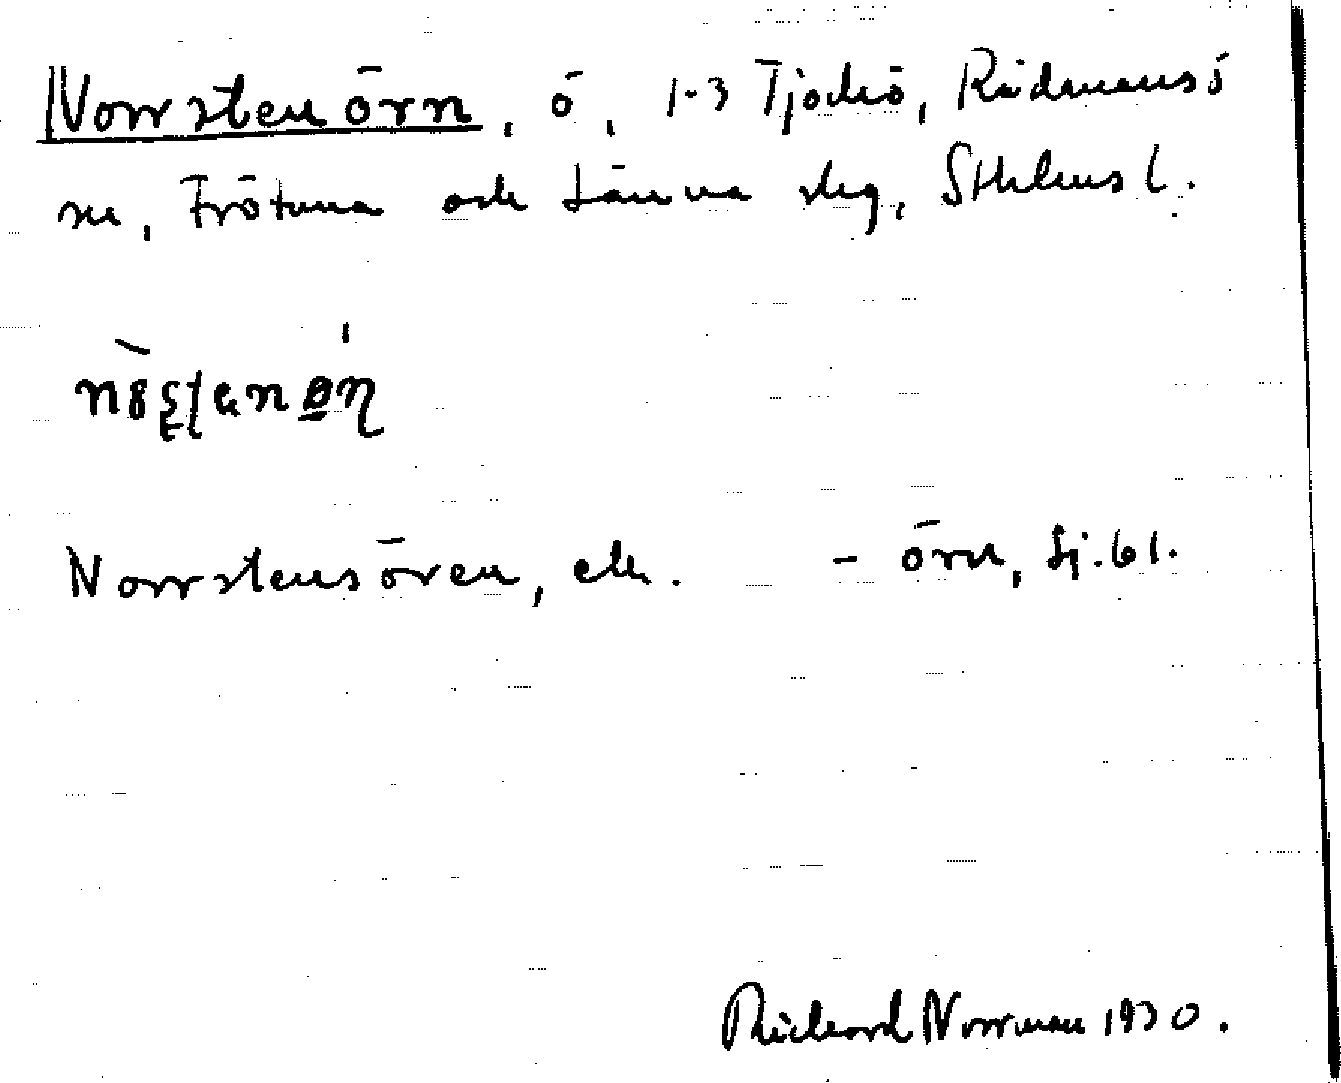 Norrstenörn, ö, 1-3 Tjockö, Rådmansö
sn, Frötuna och Länna skg, Sthlms l.
Norrstensören, ek. – örn, Sj. 61.
Richard Norrman 1930.